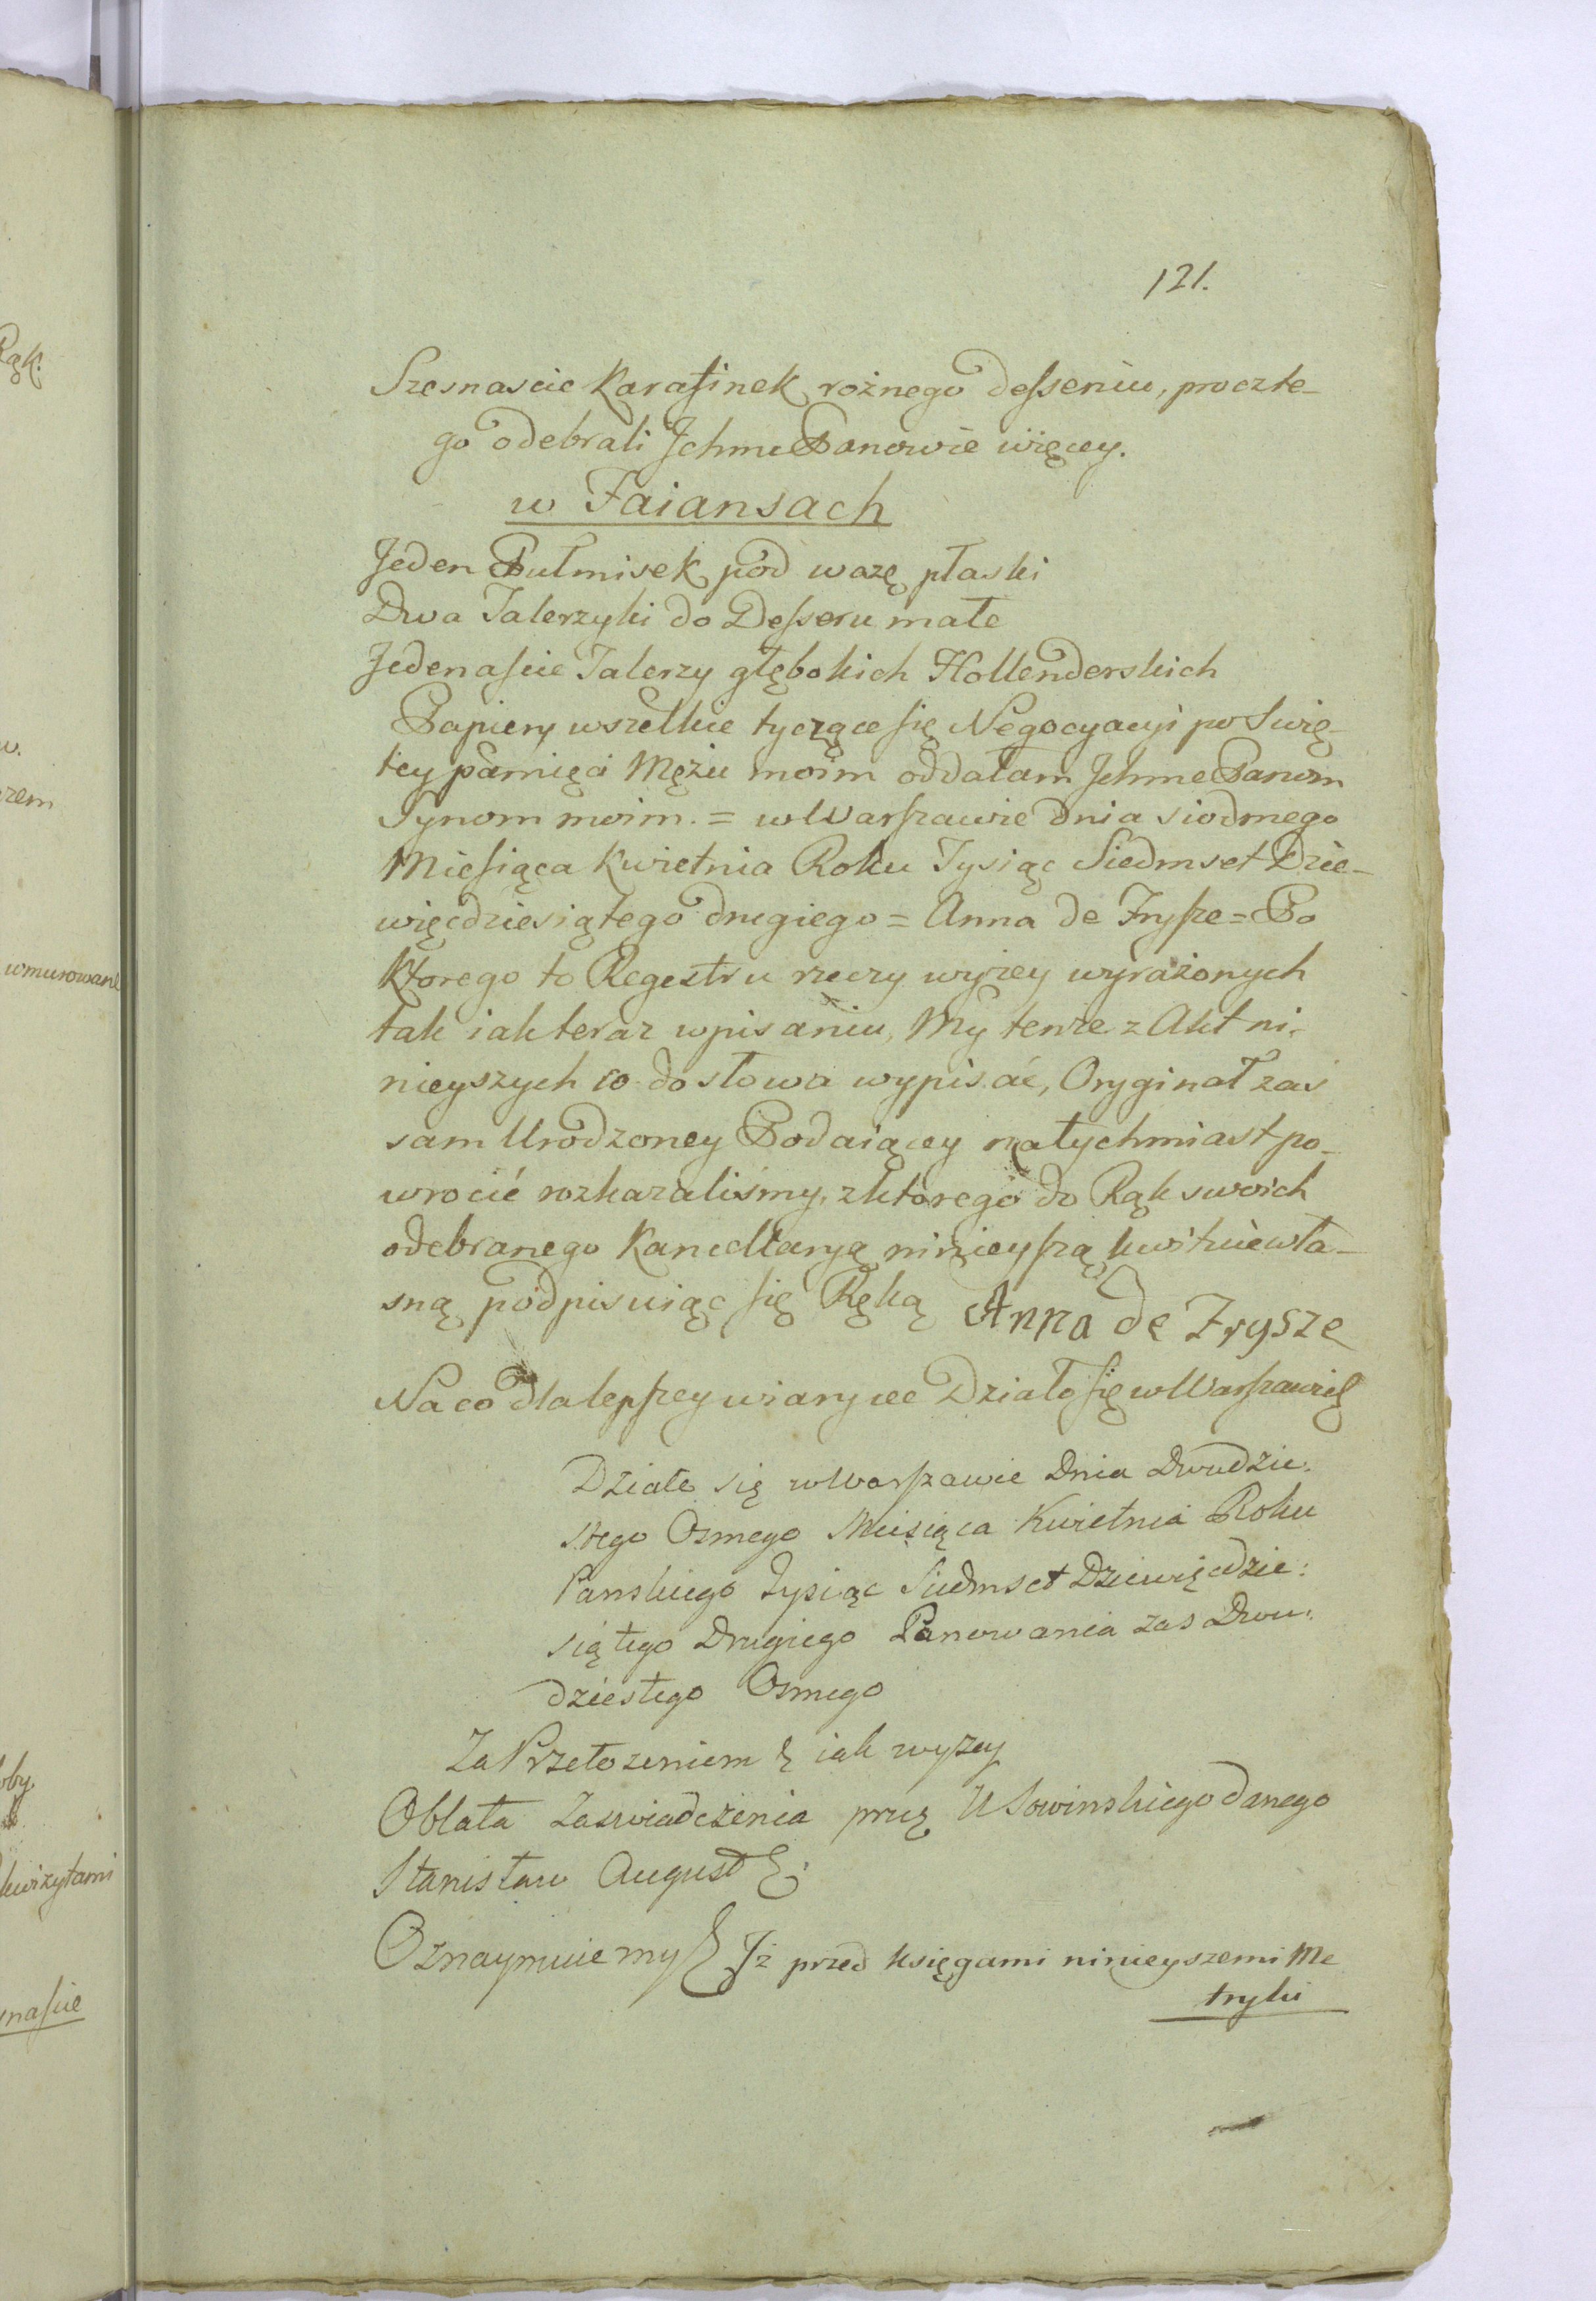 Rąk.
w.
rzem
wmurowane
oby.
kwizytami
nascie
121.
Szesnascie Karafinek rożnego desseniu, procz te-
go odebrali Jchmć Panowie więcey.
w Faiansach
Jeden Pułmisek pod wazę płaski
Dwa Talerzyki do Desseru małe
Jedenascie Talerzy głębokich Hollenderskich
Papiery wszelkie tyczące się Negocyacyi po Swię-
tey pamięci Mężu moim oddałam Jchmć Panom
Synom moim. = w Warszawie dnia siodmego
Miesiąca Kwietnia Roku Tysiąc Siedmset Dzie-
więcdziesiątego drugiego = Anna de Frysze = Po
ktorego to Regestru rzeczy wyżey wyrażonych
tak iak teraz wpisaniu, My tenże z Akt ni-
nieyszych co do słowa wypisać, Oryginał zaś
sam Urodzoney Podaiącey natychmiast po-
wrocić rozkazaliśmy, z ktorego do Rąk swoich
odebranego Kancellaryą ninieyszą kwituie wła-
sną podpisuiąc się Ręką Anna de Frysze
Na co dla lepszey wiary etc Działo się w Warszawie
Działo się w Warszawie Dnia Dwudzie:
stego Osmego Miesiąca Kwietnia Roku
Panskiego Tysiąc Siedmset Dziewięcdzie:
siątego Drugiego Panowania zas Dwu:
dziestego Osmego
Za Przełozeniem & iak wyzey
Oblata Zaswiadczenia przez U Sowinskiego danego
Stanisław August &:
Oznaymuiemy & Jż przed księgami ninieyszemi Me
tryki